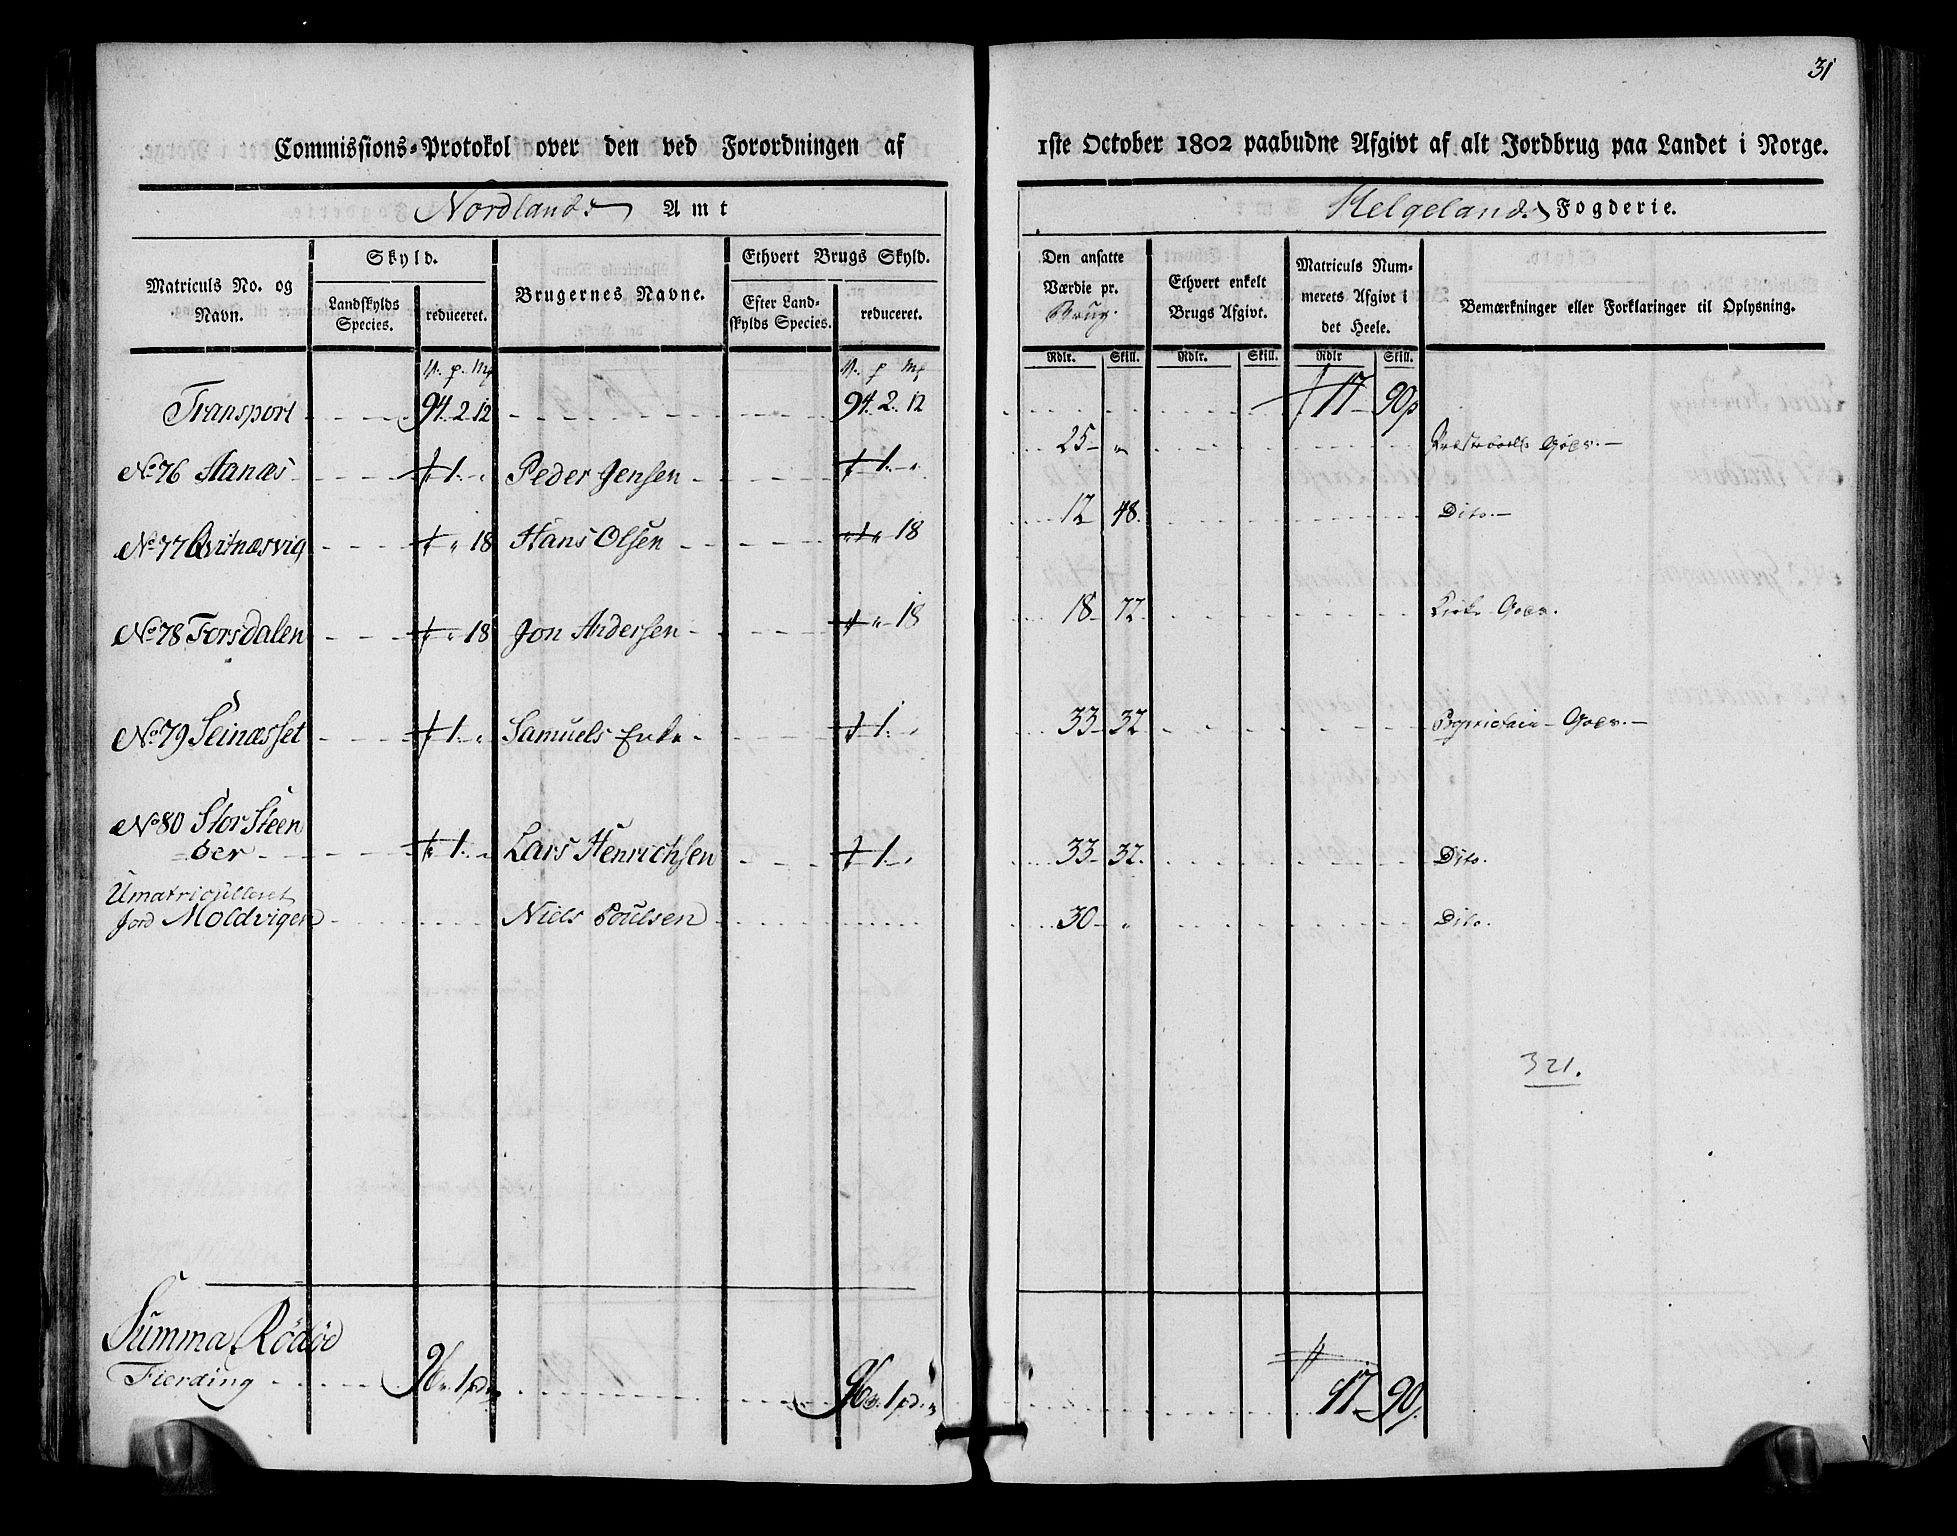 31
Commissions-Protokol over den ved Forordningen af 1ste October 1802 paabudne Afgivt af alt Jordbrug paa Landet i Norge.
Nordlands Amt Helgelands Fogderie.
Matriculs No. og Navn.
Skyld.
Landskylds Species.
reduceret.
Brugernes Navne.
Ethvert Brugs Skyld.
Efter Landskylds Species.
reduceret.
Den ansatte Værdie pr. Brug.
Ethvert enkelt Brugs Afgivt.
Matriculs Nummerets Afgivt i det Heele.
Bemærkninger eller Forklaringer til Oplysning.
Rdlr. Skill. Rdlr. Skill. Rdlr Skill.
Transport 94. 2. 12 94. 2. 12 17 90
No 76 Aanæs 1. Peder Jensen 1. 25
No 77 Qvitnæsvig 18 Hans Olsen 18 12 48. Dito.
No 78 Forsdalen 18 Jon Andersen 18 18 72.
No 79 Seinæsset 1. Samuels Enke 1. 33 32
No 80 Stor Steen
=oer 1. Lars Henrichsen 1. 33 32. Dito.
Umatriculleret
Jord Moldvigen Niels Poulsen 30 Dito.
321.
Summa Rödöe
Fierding 96 1 96 1 17 90